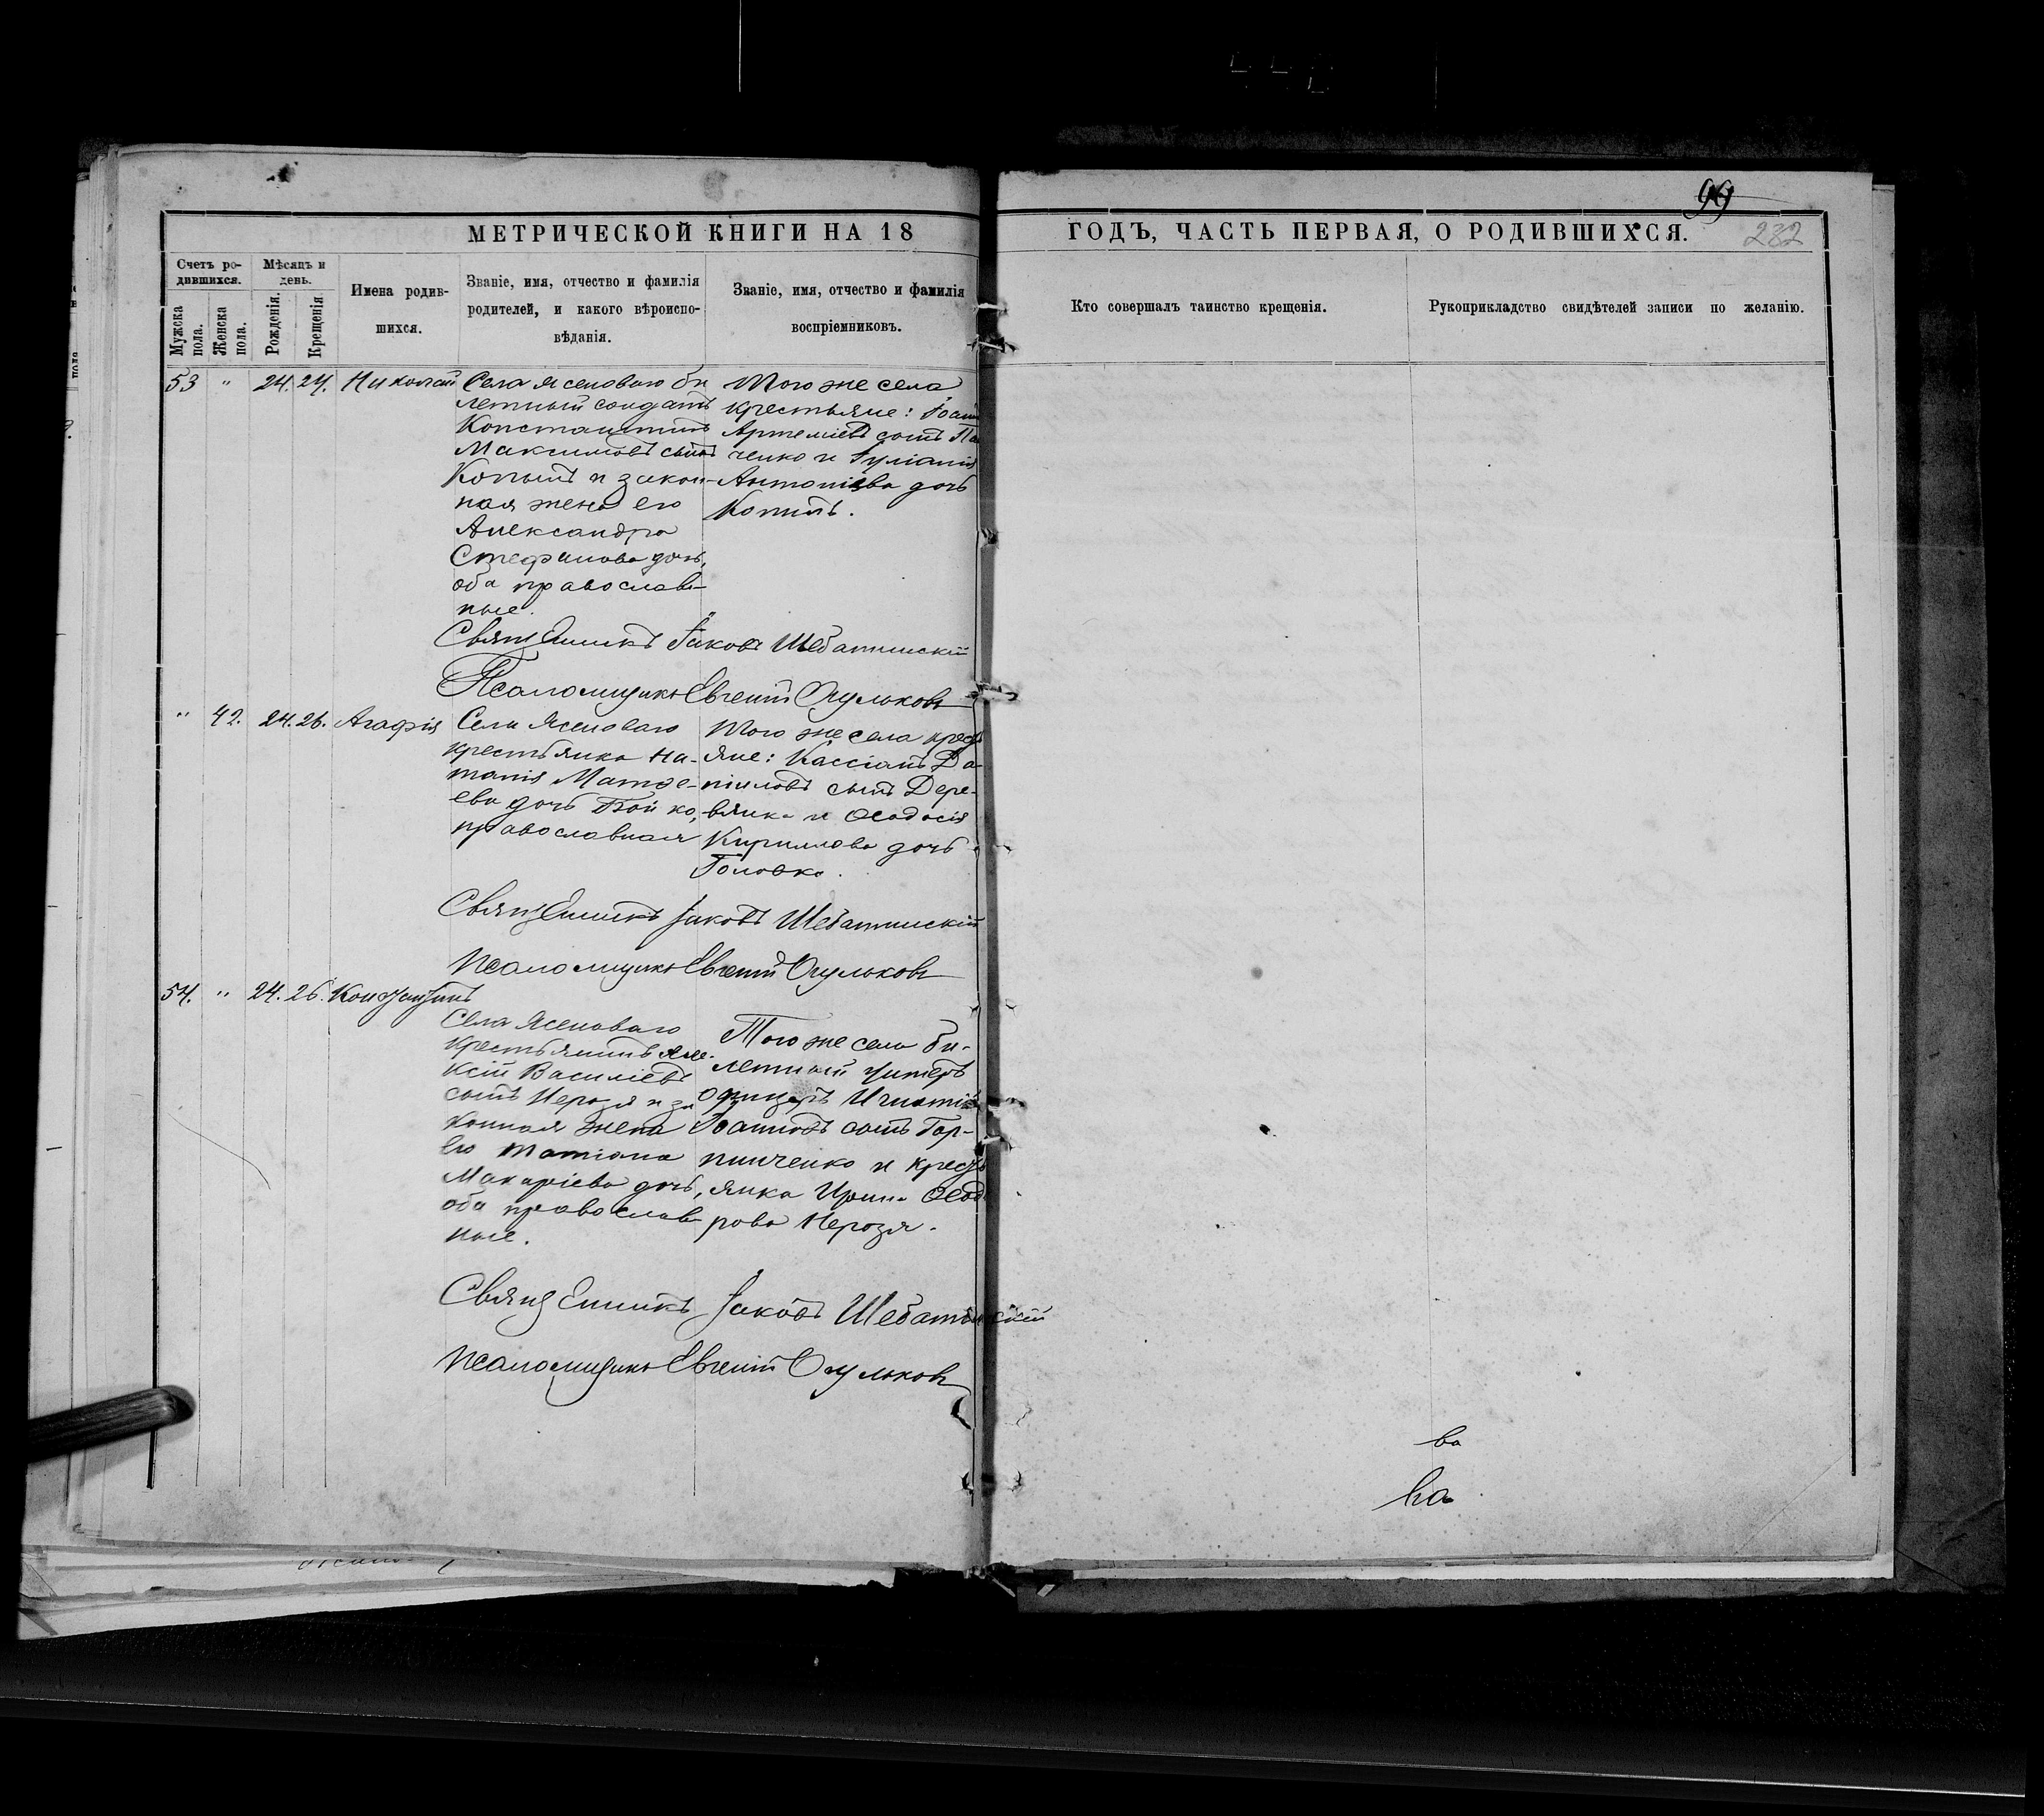 99
282
МЕТРИЧЕСКОЙ КНИГИ НА 18
ГОДЪ, ЧАСТЬ ПЕРВАЯ, О РОДИВШИХСЯ.
Счетъ ро-
дившихся.
Мужска пола.
Женска пола.
Мѣсяцъ и
день.
Рожденія.
Крещенія.
Имена родив-
шихся.
Званіе, имя, отчество и фамилія
родителей, и какого вѣроиспо-
вѣданія.
Званіе, имя, отчество и фамилія
воспріемниковъ.
Кто совершалъ таинство крещенія.
Рукоприкладство свидѣтелей записи по желанію.
53 " 24. 27. Николай
Села Ясеноваго би
летный солдатъ
Константинъ
Максимовъ сынъ
Копылъ и закон-
ная жена его
Александра
Стефанова дочь,
оба православ-
ные.
Того же села
крестьяне:
Артеміевъ сынъ
ченко и Іуліанія
Антоніева дочь
Копылъ.
Священникъ Іаковъ Шебатинскій
Псаломщикъ Евгеній
" 42. 24. 26. Агафія
Села Ясеноваго
крестьянка На-
талія Матфе-
ева дочь Бойко,
православная
Того же села крест
яне: Кассіанъ Да-
ніиловъ сынъ Дере-
вянко и Ѳеодосія
Кириллова дочь
Головко.
Священникъ Іаковъ Шебатинскій
Псаломщикъ Евгеній
54. " 24. 26. Константинъ
Села Ясеноваго
крестьянинъ Але-
ксій Василіевъ
сынъ Нерозя и за
конная жена
его Татіана
Макаріева дочь,
оба православ-
ные.
Того же села би-
летный унтеръ
офицеръ Игнатій
Іоанновъ сынъ Гор-
пинченко и крест
янка Ирина Ѳеод
рова Нерозя.
Священникъ Іаковъ Шебатинскій
Псаломщикъ Евгеній
ва